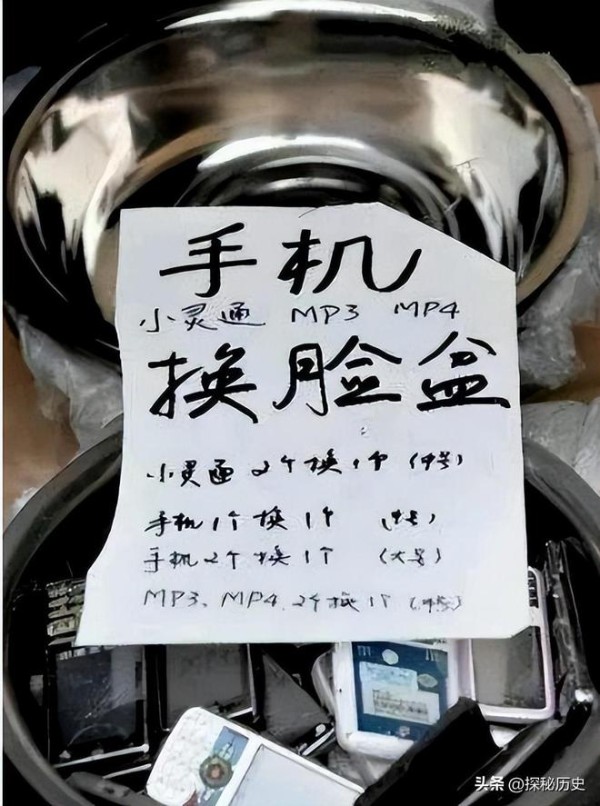 手机
小灵通 MP3 MP4
换脸盆
小灵通 2个换1个 (中号)
手机1个换1个 (中号)
手机2个换1个 (大号)
MP3、MP4 2个换1个 (中号)
头条 @探秘历史